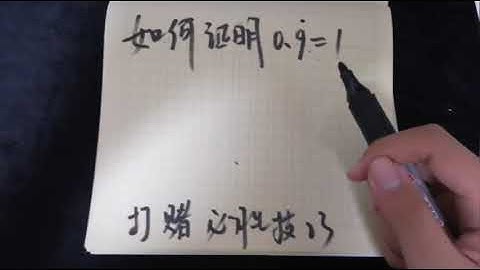 如何证明0.9̇=1
打赌必胜技巧